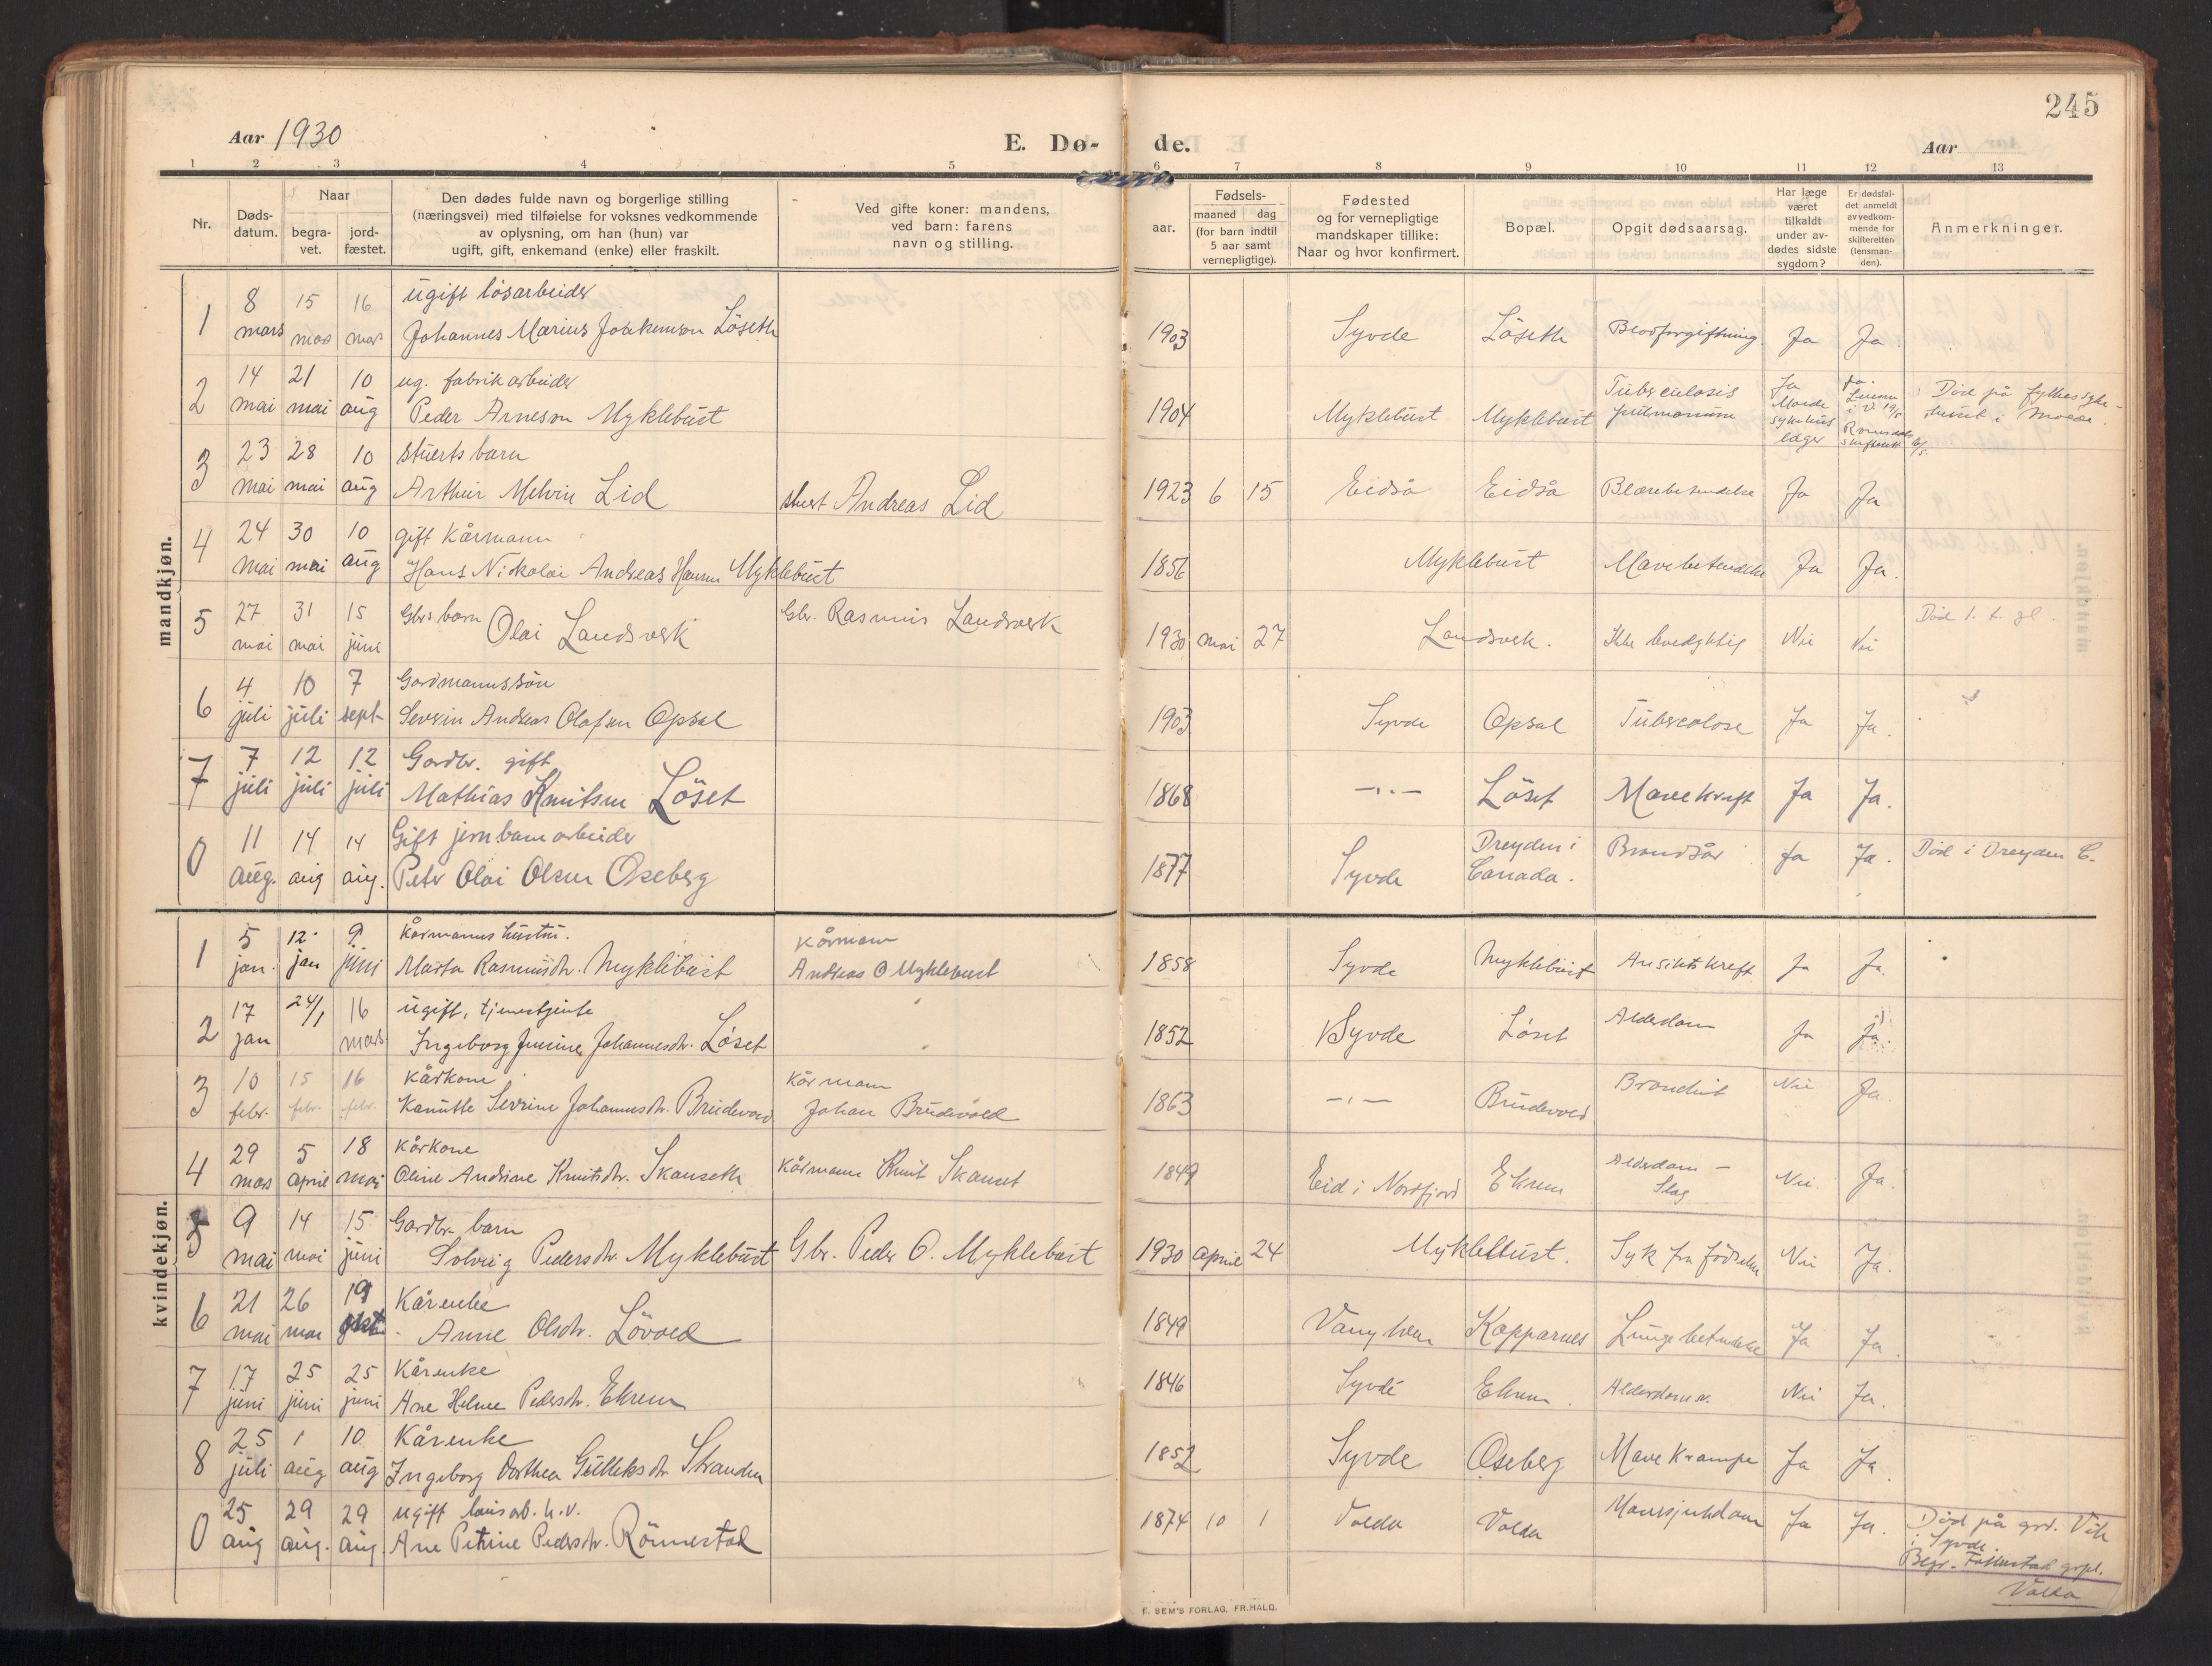 245
Aar 1930
E. Dø-
de.
Aar
1 2 3 4 5 6 7 8 9 10 11 12 13
Nr.
Døds-
datum.
Naar
begra-
vet.
jord-
fæstet.
Den dødes fulde navn og borgerlige stilling
(næringsvei) med tilføielse for voksnes vedkommende
av oplysning, om han (hun) var
ugift, gift, enkemand (enke) eller fraskilt.
Ved gifte koner: mandens,
ved barn: farens
navn og stilling.
Fødsels-
aar.
maaned dag
(for barn indtil
5 aar samt
vernepligtige).
Fødested
og for vernepligtige
mandskaper tillike:
Naar og hvor konfirmert.
Bopæl.
Opgit dødsaarsag.
Har læge
været
tilkaldt
under av-
dødes sidste
sygdom?
Er dødsfal-
det anmeldt
av vedkom-
mende for
skifteretten
(lensman-
den).
Anmerkninger.
mandkjøn.
8 15 16 ugift løsarbeider
1 mars mars mars Johannes Marius Joakimson Löseth 1903 Syvde Löseth Blodforgiftning Ja Ja
14 21 10 ug. fabrikarbeider
2 mai mai aug Peder Arneson Myklebust 1904 Myklebust Myklebust Tuberculosis pulmonum Ja Molde sykehus læge Ja Død på fylkessyke-
huset i Molde.
23 28 10 stuerts barn
3 mai mai aug Arthur Melvin Lid stuert Andreas Lid 1923 6 15 Eidså Eidså Blærebetendelse Ja Ja
24 30 10 gift kårmann
4 mai mai aug Hans Nikolai Andreas Hansen Myklebust 1856 Myklebust Mavebetendelse Ja Ja.
27 31 15 Gbrs barn
5 mai mai juni Olai Landsverk Gbr. Rasmus Landsverk 1930 mai 27 Landsverk. Ikke levedyktig Nei Nei Død
4 10 7 Gardmannssön
6 juli juli sept Severin Andreas Olafsen Opsal 1903 Syvde Opsal Tuberculose Ja Ja.
7 12 12 Gardbr. gift
7 juli juli juli Mathias Knutsen Löset 1868 -"- Löset Mavekreft Ja Ja.
11 14 14 Gift jernbanearbeider
0 aug. aug aug. Peter Olai Olsen Oseberg 1877 Syvde Dreyden i
Canada. Brandsår Ja Ja. Död i Dreyden C.
kvindekjøn.
5 12 9 Kårmanns hustru.
1 jan. jan juni Marta Rasmusdtr. Myklebust Kårmann
Andreas O Myklebust 1858 Syvde Myklebust Ansiktskreft Ja Ja.
17 24/1 16 ugift, tjenestjente
2 jan mars Ingeborg Johannesdtr. Löset 1852 Syvde Löset Alderdom Ja Ja.
10 15 16 Kårkone
3 febr. febr. febr. Severine Johannesdtr. Brudevold Kårmann
Johan Brudevold 1863 -"- Brudevold Nei Ja.
29 5 18 Kårkone
4 mars april mai Oline Andrine Knutsdtr. Skanseth Kårmann Knut Skanset 1849 Eid i Nordfjord Ekrem Alderdom -
Slag Nei Ja.
9 14 15 Gardbr. barn
5 mai mai juni Solveig Pedersdtr. Myklebust Gbr. Peder O. Myklebust 1930 april 24 Myklebust. Syk fra födselen Nei Ja.
21 26 19 Kårenke
6 mai mai okt. Anne Olsdtr. Lövold 1849 Vanylven Kopparnes Lungebetendelse Ja Ja.
17 25 25 Kårenke
7 juni juni juni Ane Helene Pedersdtr. Ekrem 1846 Syvde Ekrem. Alderdom Nei Ja.
25 1 10 Kårenke
8 juli aug aug Ingeborg Dorthea Gulleksdtr. Stranden 1852 Syvde Oseberg Mavekrampe Ja Ja.
25 29 29 ugift h.v.
0 aug aug. aug. Ane Petrine Pedersdtr. Rönnestad 1874 10 1 Volda Volda Ja Ja. Död på grd. Vik
i Syvde.
Volda
E. SEM'S FORLAG, FR.HALD.